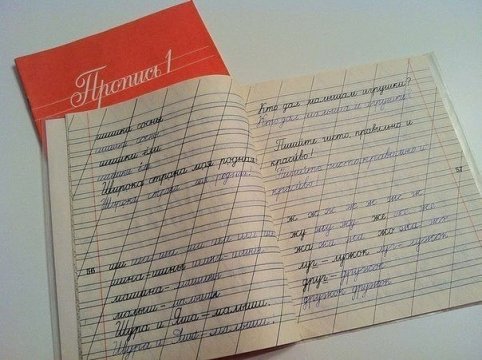 Пропись 1
шишки сосны
шишки сосны
шишки ели
шишки ели
Широка страна моя родная!
Широка страна моя родная!
ши ши ши ши ши ши
шина - шины шина - шины
машина - машины
малыш - малыши
Шура и Яша - малыши.
Шура и Яша - малыши.
Кто дал малышам игрушки?
Кто дал малышам игрушки?
Пишите чисто, правильно и
красиво!
Пишите чисто, правильно и
красиво!
ж ж ж ж ж ж ж
жу жу жу же же же
жа жа жа жо жо жо
луг - лужок луг - лужок
друг - дружок
дружок дружок